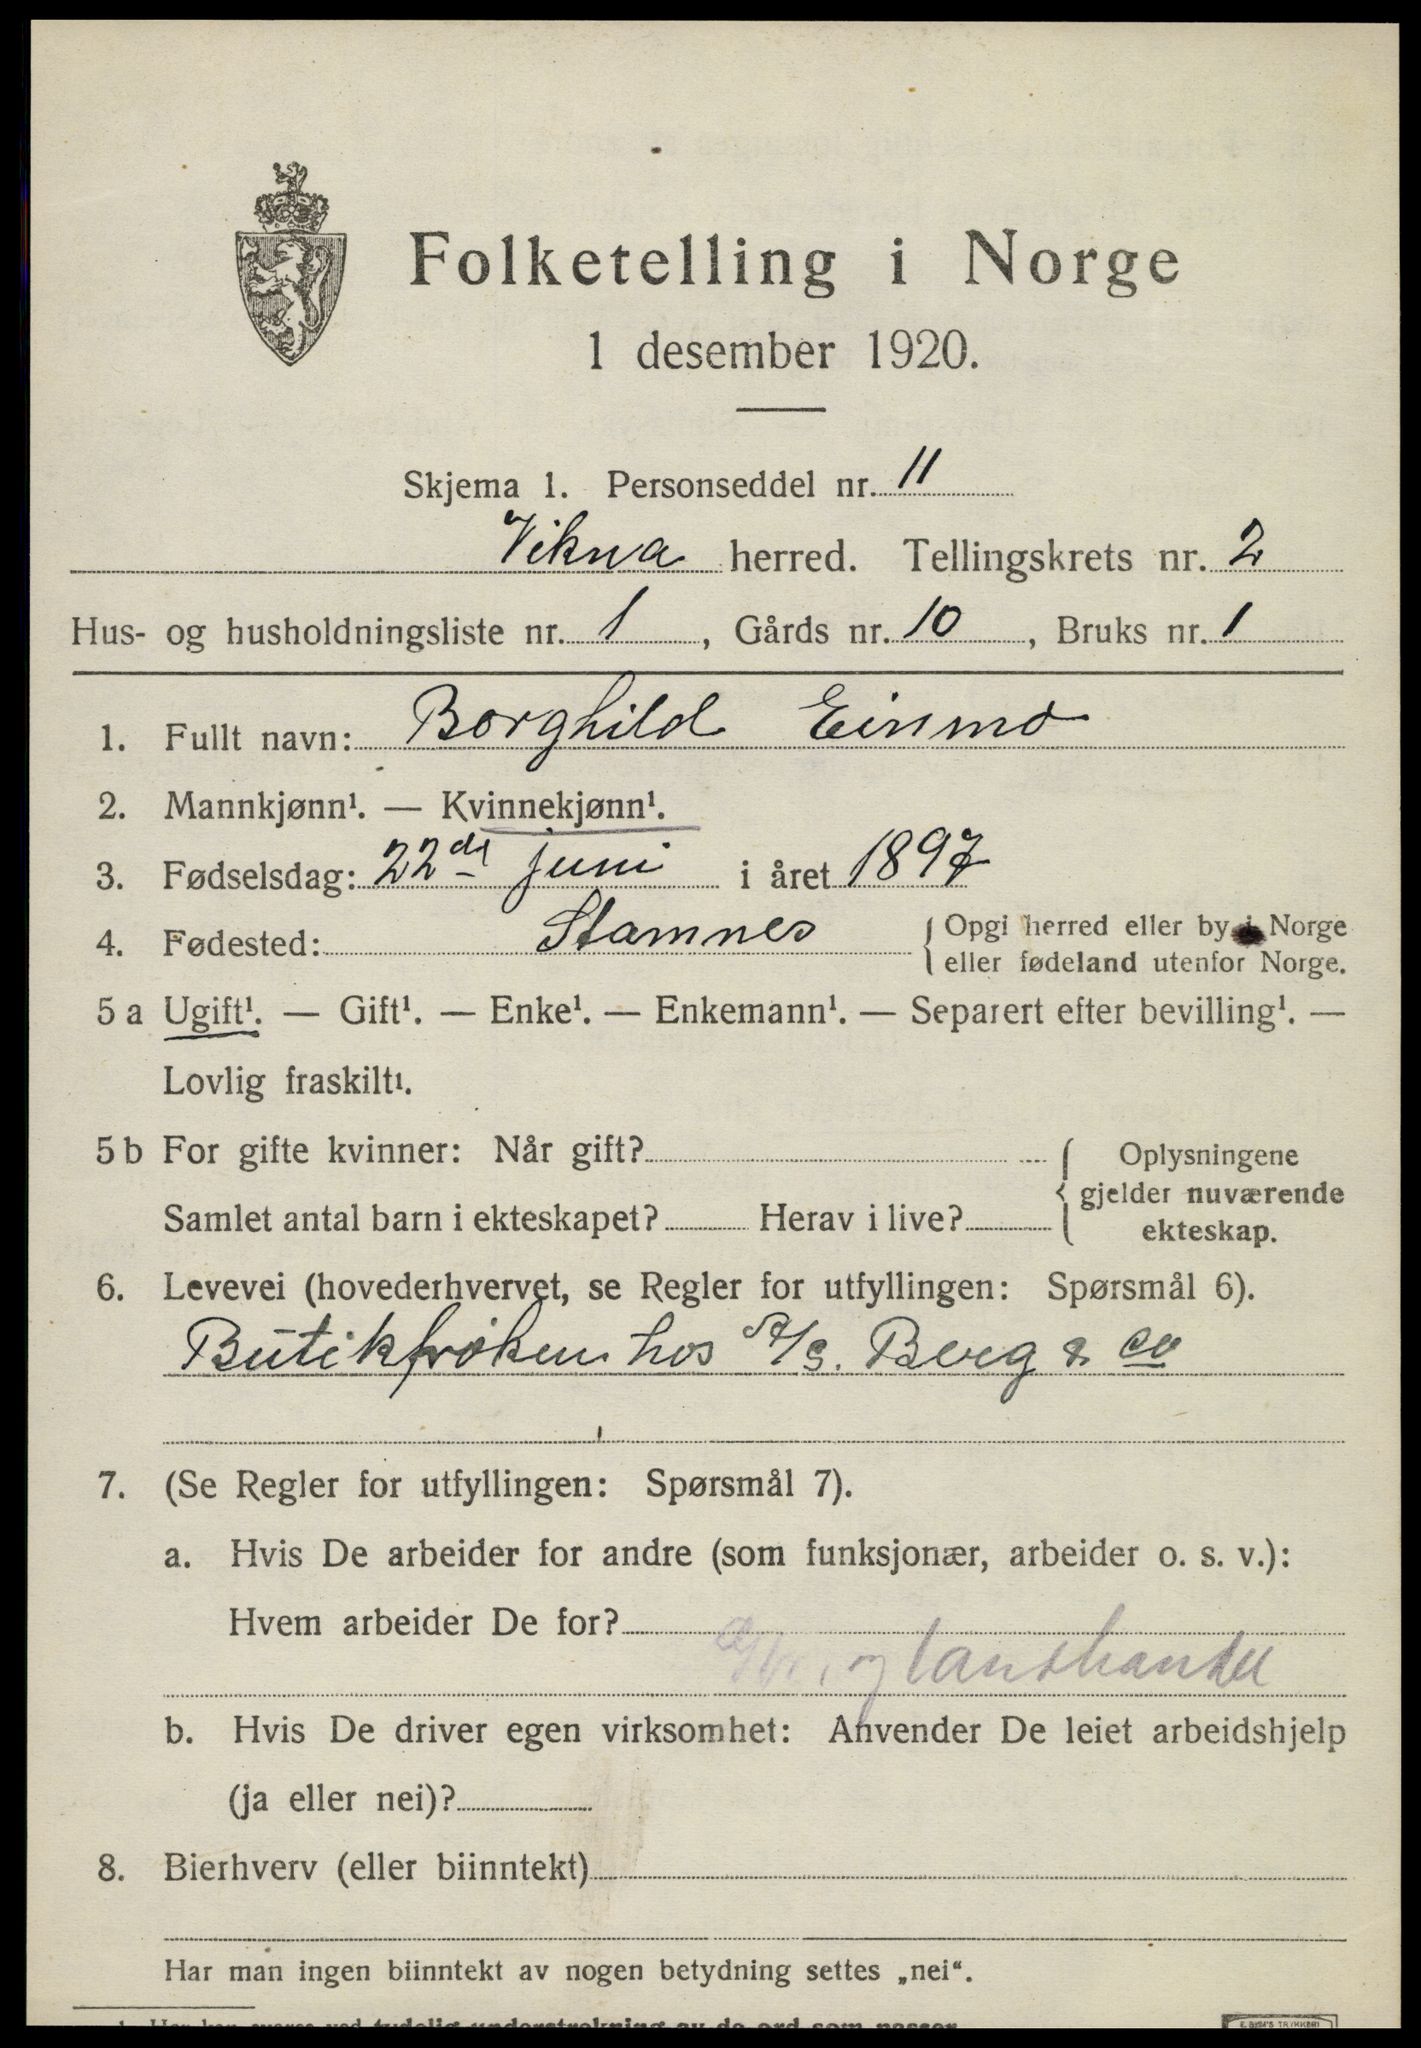 Folketelling i Norge
1 desember 1920.
Skjema 1. Personseddel nr. 11
Vikna herred. Tellingskrets nr. 2
Hus- og husholdningsliste nr. 1, Gårds nr. 10, Bruks nr. 1
1. Fullt navn: Borghild Einmo
2. Mannkjønn¹. — Kvinnekjønn¹.
3. Fødselsdag: 22de juni i året 1897
4. Fødested: Stamnes { Opgi herred eller by i Norge
eller fødeland utenfor Norge.
5 a Ugift¹. — Gift¹. — Enke¹. — Enkemann¹. — Separert efter bevilling¹. —
Lovlig fraskilt¹.
5 b For gifte kvinner: Når gift? { Oplysningene
gjelder nuværende
Samlet antal barn i ekteskapet? Herav i live?
ekteskap.
6. Levevei (hovederhvervet, se Regler for utfyllingen: Spørsmål 6).
Butikfrøken hos A/S. Berg & co
7. (Se Regler for utfyllingen: Spørsmål 7).
a. Hvis De arbeider for andre (som funksjonær, arbeider o. s. v.):
Hvem arbeider De for?
og landhandel
b. Hvis De driver egen virksomhet: Anvender De leiet arbeidshjelp
(ja eller nei)?
8. Bierhverv (eller biinntekt)
Har man ingen biinntekt av nogen betydning settes „nei“.